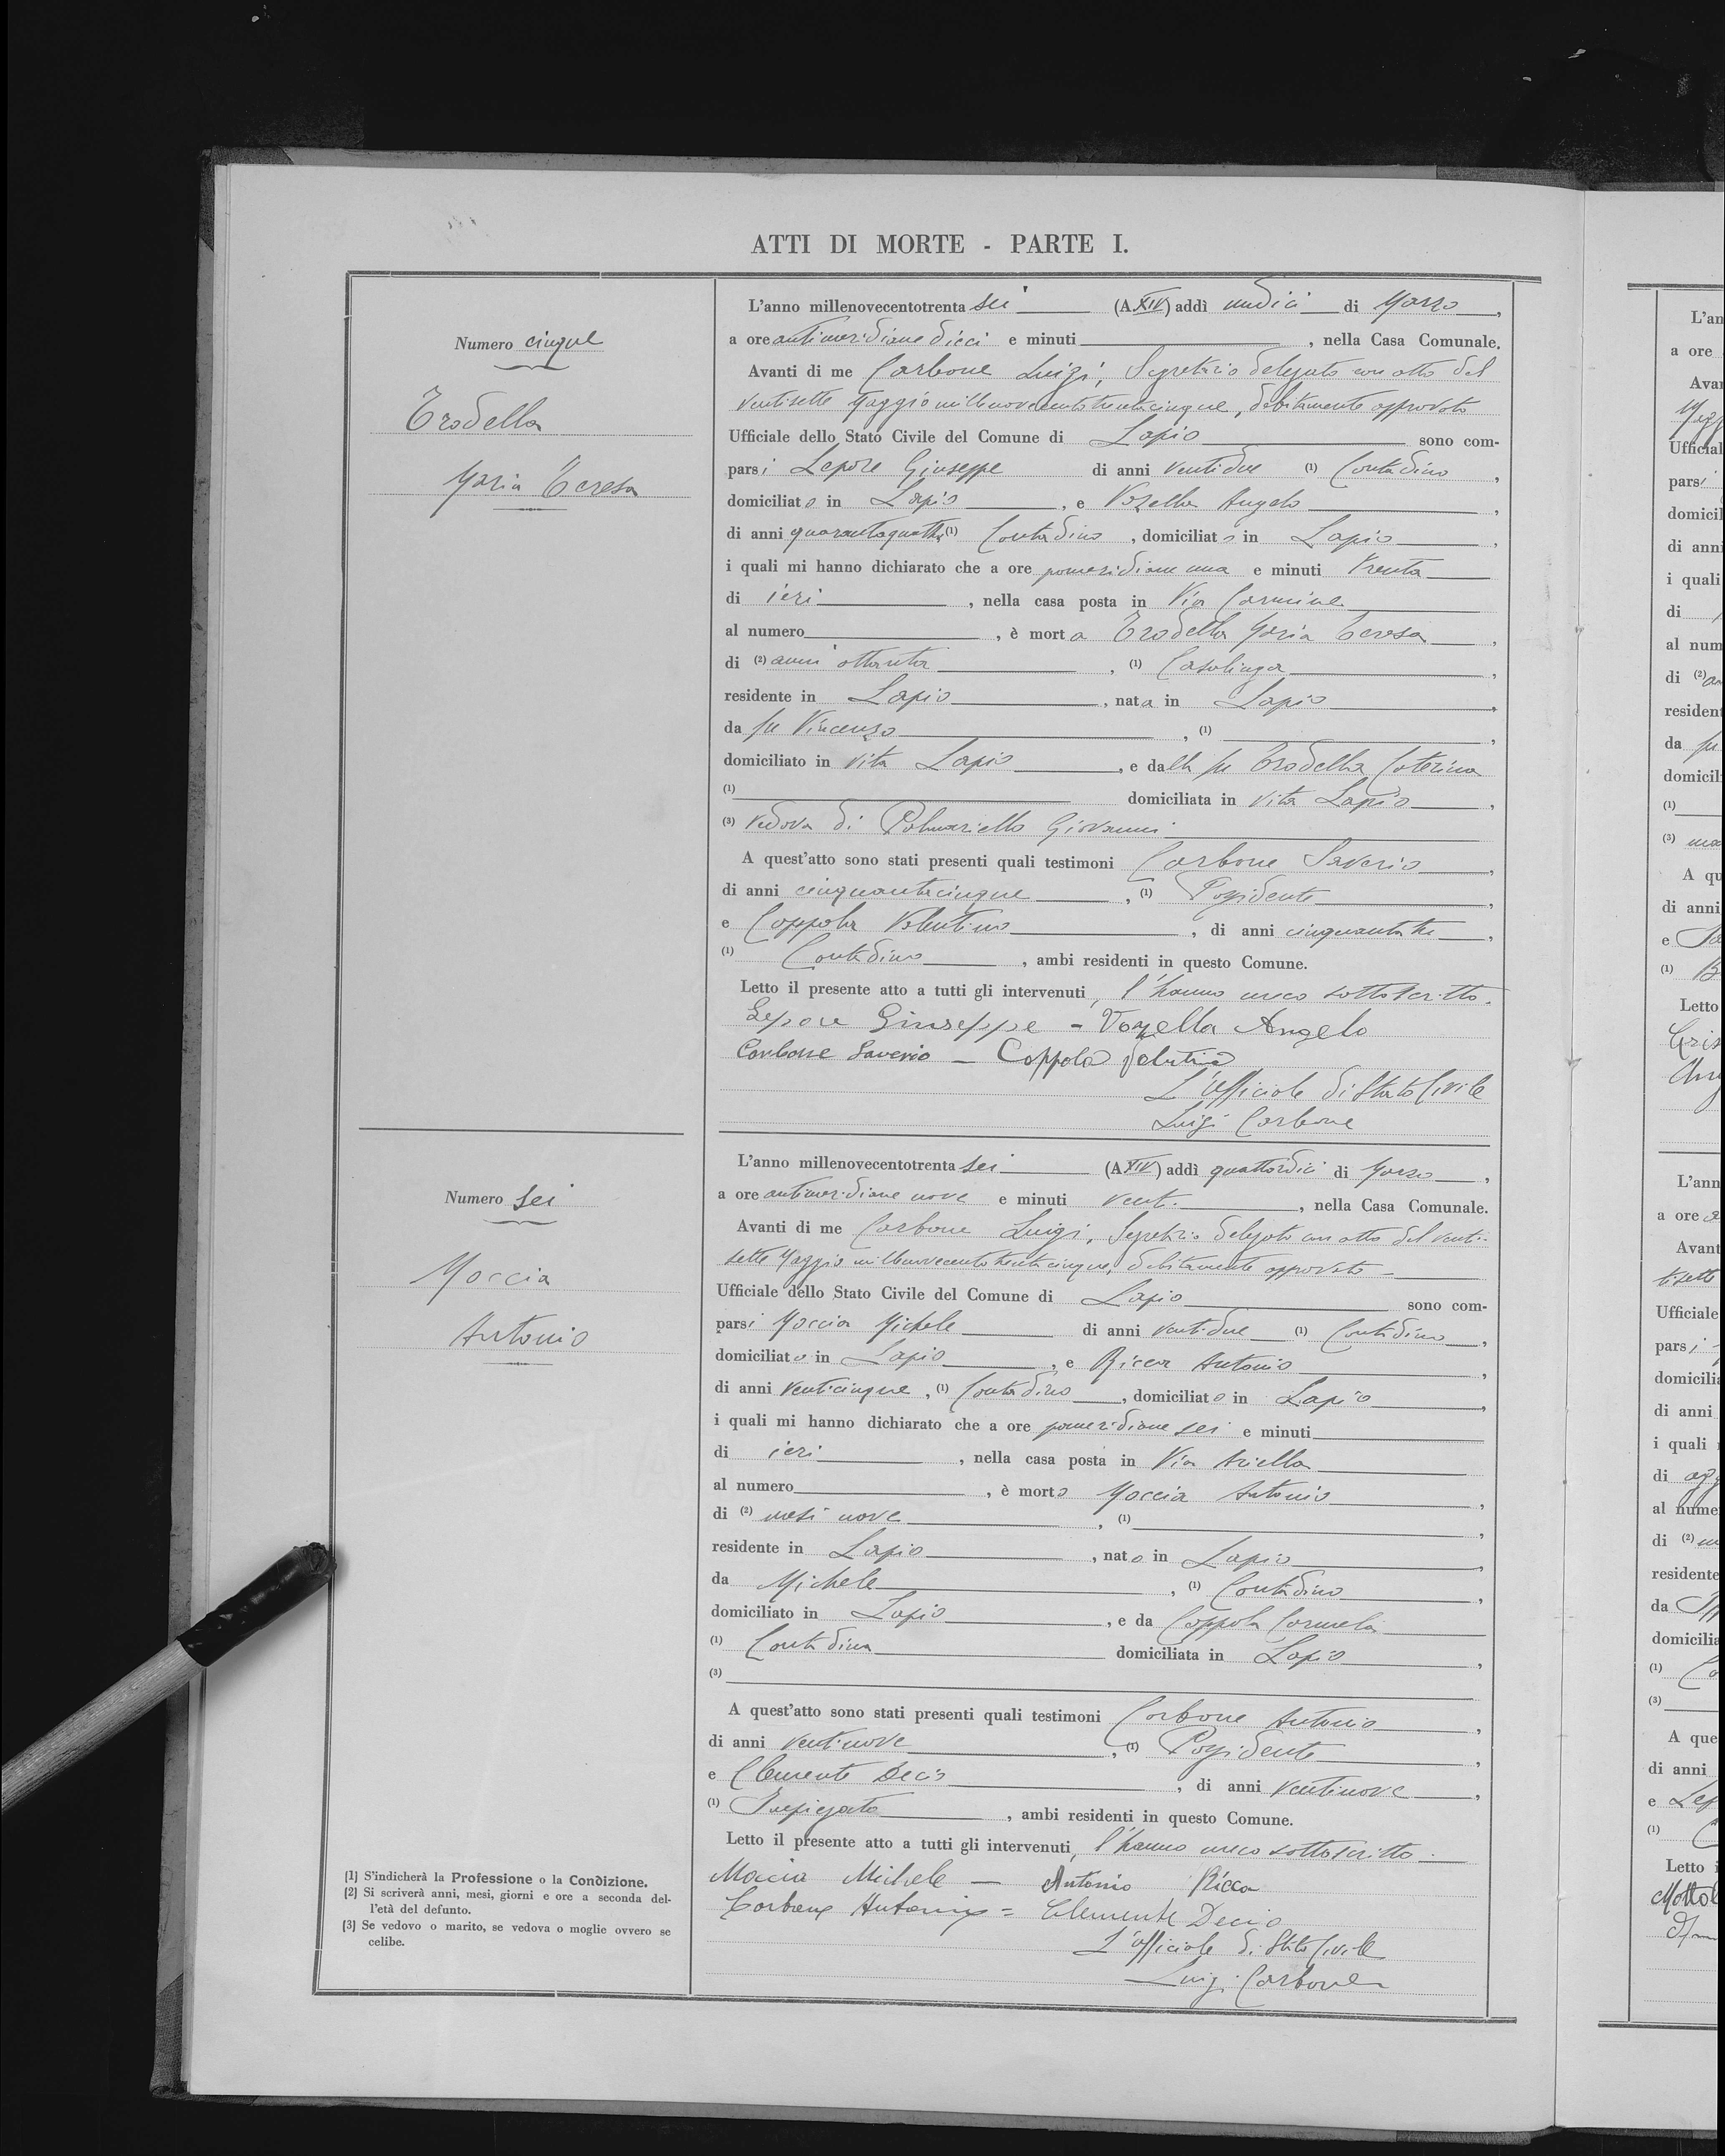 ATTI DI MORTE - PARTE I.
Numero cinque
Trodella
Maria Teresa
L'anno millenovecentotrenta sei (A. XIV) addì undici di Marzo,
a ore antimeridiane dieci e minuti , nella Casa Comunale.
Avanti di me Carbone Luigi, Segretario delegato con atto del
ventisette Maggio millenovecentotrentacinque, debitamente approvato
Ufficiale dello Stato Civile del Comune di Lapio sono com-
parsi Lepore Giuseppe di anni ventidue (1) Contadino,
domiciliato in Lapio, e Vozella Angelo,
di anni quarantaquattro (1) Contadino, domiciliato in Lapio,
i quali mi hanno dichiarato che a ore pomeridiane una e minuti trenta
di ieri, nella casa posta in Via Carmine
al numero , è morta Trodella Maria Teresa,
di (2) anni ottanta, (1) Casalinga,
residente in Lapio, nata in Lapio,
da fu Vincenzo, (1) ,
domiciliato in vita Lapio, e dalla fu Trodella Caterina
(1) domiciliata in vita Lapio,
(3) vedova di Palmariello Giovanni
A quest'atto sono stati presenti quali testimoni Carbone Saverio,
di anni cinquantacinque, (1) Possidente,
e Coppola Valentino, di anni cinquantatre,
(1) Contadino, ambi residenti in questo Comune.
Letto il presente atto a tutti gli intervenuti, l'hanno meco sottoscritto.
Lepore Giuseppe - Vozella Angelo
Carbone Saverio - Coppola
L'Ufficiale di Stato Civile
Luigi Carbone
Numero sei
Moccia
Antonio
L'anno millenovecentotrenta sei (A. XIV) addì quattordici di Marzo,
a ore antimeridiane nove e minuti venti, nella Casa Comunale.
Avanti di me Carbone Luigi, Segretario delegato con atto del venti-
sette Maggio millenovecentotrentacinque, debitamente approvato -
Ufficiale dello Stato Civile del Comune di Lapio sono com-
parsi Moccia Michele di anni ventidue (1) Contadino,
domiciliato in Lapio, e Ricca Antonio,
di anni venticinque, (1) Contadino, domiciliato in Lapio,
i quali mi hanno dichiarato che a ore pomeridiane sei e minuti
di ieri, nella casa posta in Via Ariella
al numero , è morto Moccia Antonio,
di (2) mesi nove, (1) ,
residente in Lapio, nato in Lapio,
da Michele, (1) Contadino,
domiciliato in Lapio, e da Coppola Carmela
(1) Contadina domiciliata in Lapio,
(3)
A quest'atto sono stati presenti quali testimoni Carbone Antonio,
di anni ventinove, (1) Possidente,
e Clemente Decio, di anni ventinove,
(1) Impiegato, ambi residenti in questo Comune.
Letto il presente atto a tutti gli intervenuti, l'hanno meco sottoscritto.
Moccia Michele - Antonio Ricca
Carbone Antonio = Clemente Decio
L'Ufficiale di Stato Civile
Luigi Carbone
(1) S'indicherà la Professione o la Condizione.
(2) Si scriverà anni, mesi, giorni e ore a seconda del-
l'età del defunto.
(3) Se vedovo o marito, se vedova o moglie ovvero se
celibe.